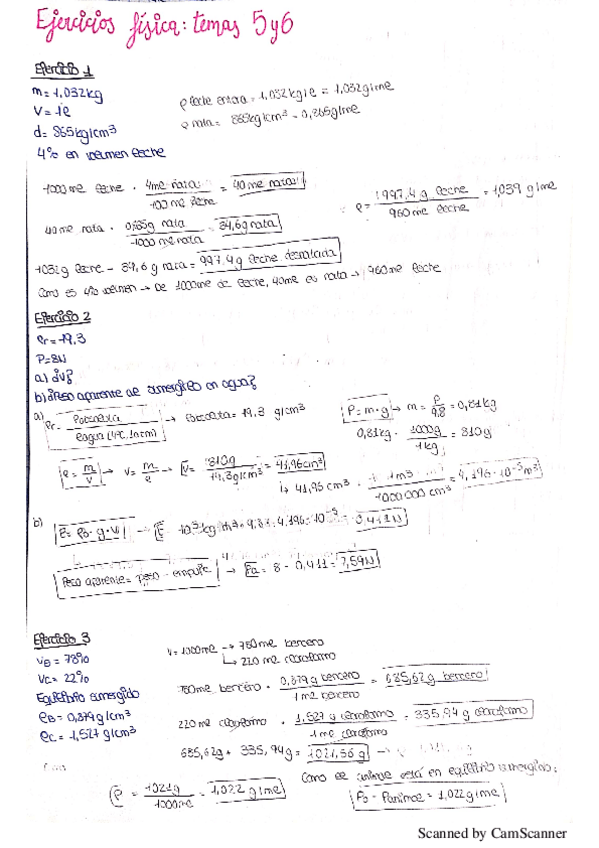 Ejercicios física: temas 5 y 6
Ejercicio 1
m = 1,032 kg
V = 1ℓ
d = 865 kg/cm³
4% en volumen leche
ρ leche entera = 1,032 kg/ℓ = 1,032 g/mℓ
ρ nata = 865 kg/cm³ = 0,865 g/mℓ
1000 mℓ leche · 4mℓ nata / 100 mℓ leche = 40 mℓ nata
40 mℓ nata · 0,865g nata / 1000 mℓ nata = 34,6 g nata
ρ = 1997,4 g leche / 960 mℓ leche = 1,039 g/mℓ
1032g leche - 34,6 g nata = 997,4 g leche desnatada
Como es 4% volumen → De 1000mℓ de leche, 40mℓ es nata → 960mℓ leche
Ejercicio 2
ρr = 19,3
P = 8N
a) ¿V?
b) ¿Peso aparente al sumergirlo en agua?
a)
→ = 19,3 g/cm³
P = m·g → m = P / 9,8 = 0,81 kg
0,81 kg · 1000g / 1kg = 810g
ρ = m / V → V = m / ρ → V = 810g / 19,3 g/cm³ = 41,96 cm³
↳ 41,96 cm³ · 1m³ / 1000000 cm³ = 4,196·10⁻⁵ m³
b)
→ = 0,411N
Peso aparente = peso - empuje → Pa = 8 - 0,411 = 7,59N
Ejercicio 3
VB = 78%
VC = 22%
Equilibrio sumergido
ρB = 0,879 g/cm³
ρC = 1,527 g/cm³
V = 1000mℓ → 780mℓ benceno
↳ 220 mℓ cloroformo
780mℓ benceno · 0,879 g benceno / 1 mℓ benceno = 685,62g benceno
220 mℓ cloroformo · 1,527 g cloroformo / 1mℓ cloroformo = 335,94 g cloroformo
685,62g + 335,94g = 1021,56 g
ρ = 1021g / 1000mℓ = 1,022 g/mℓ
= 1,022 g/mℓ
Scanned by CamScanner